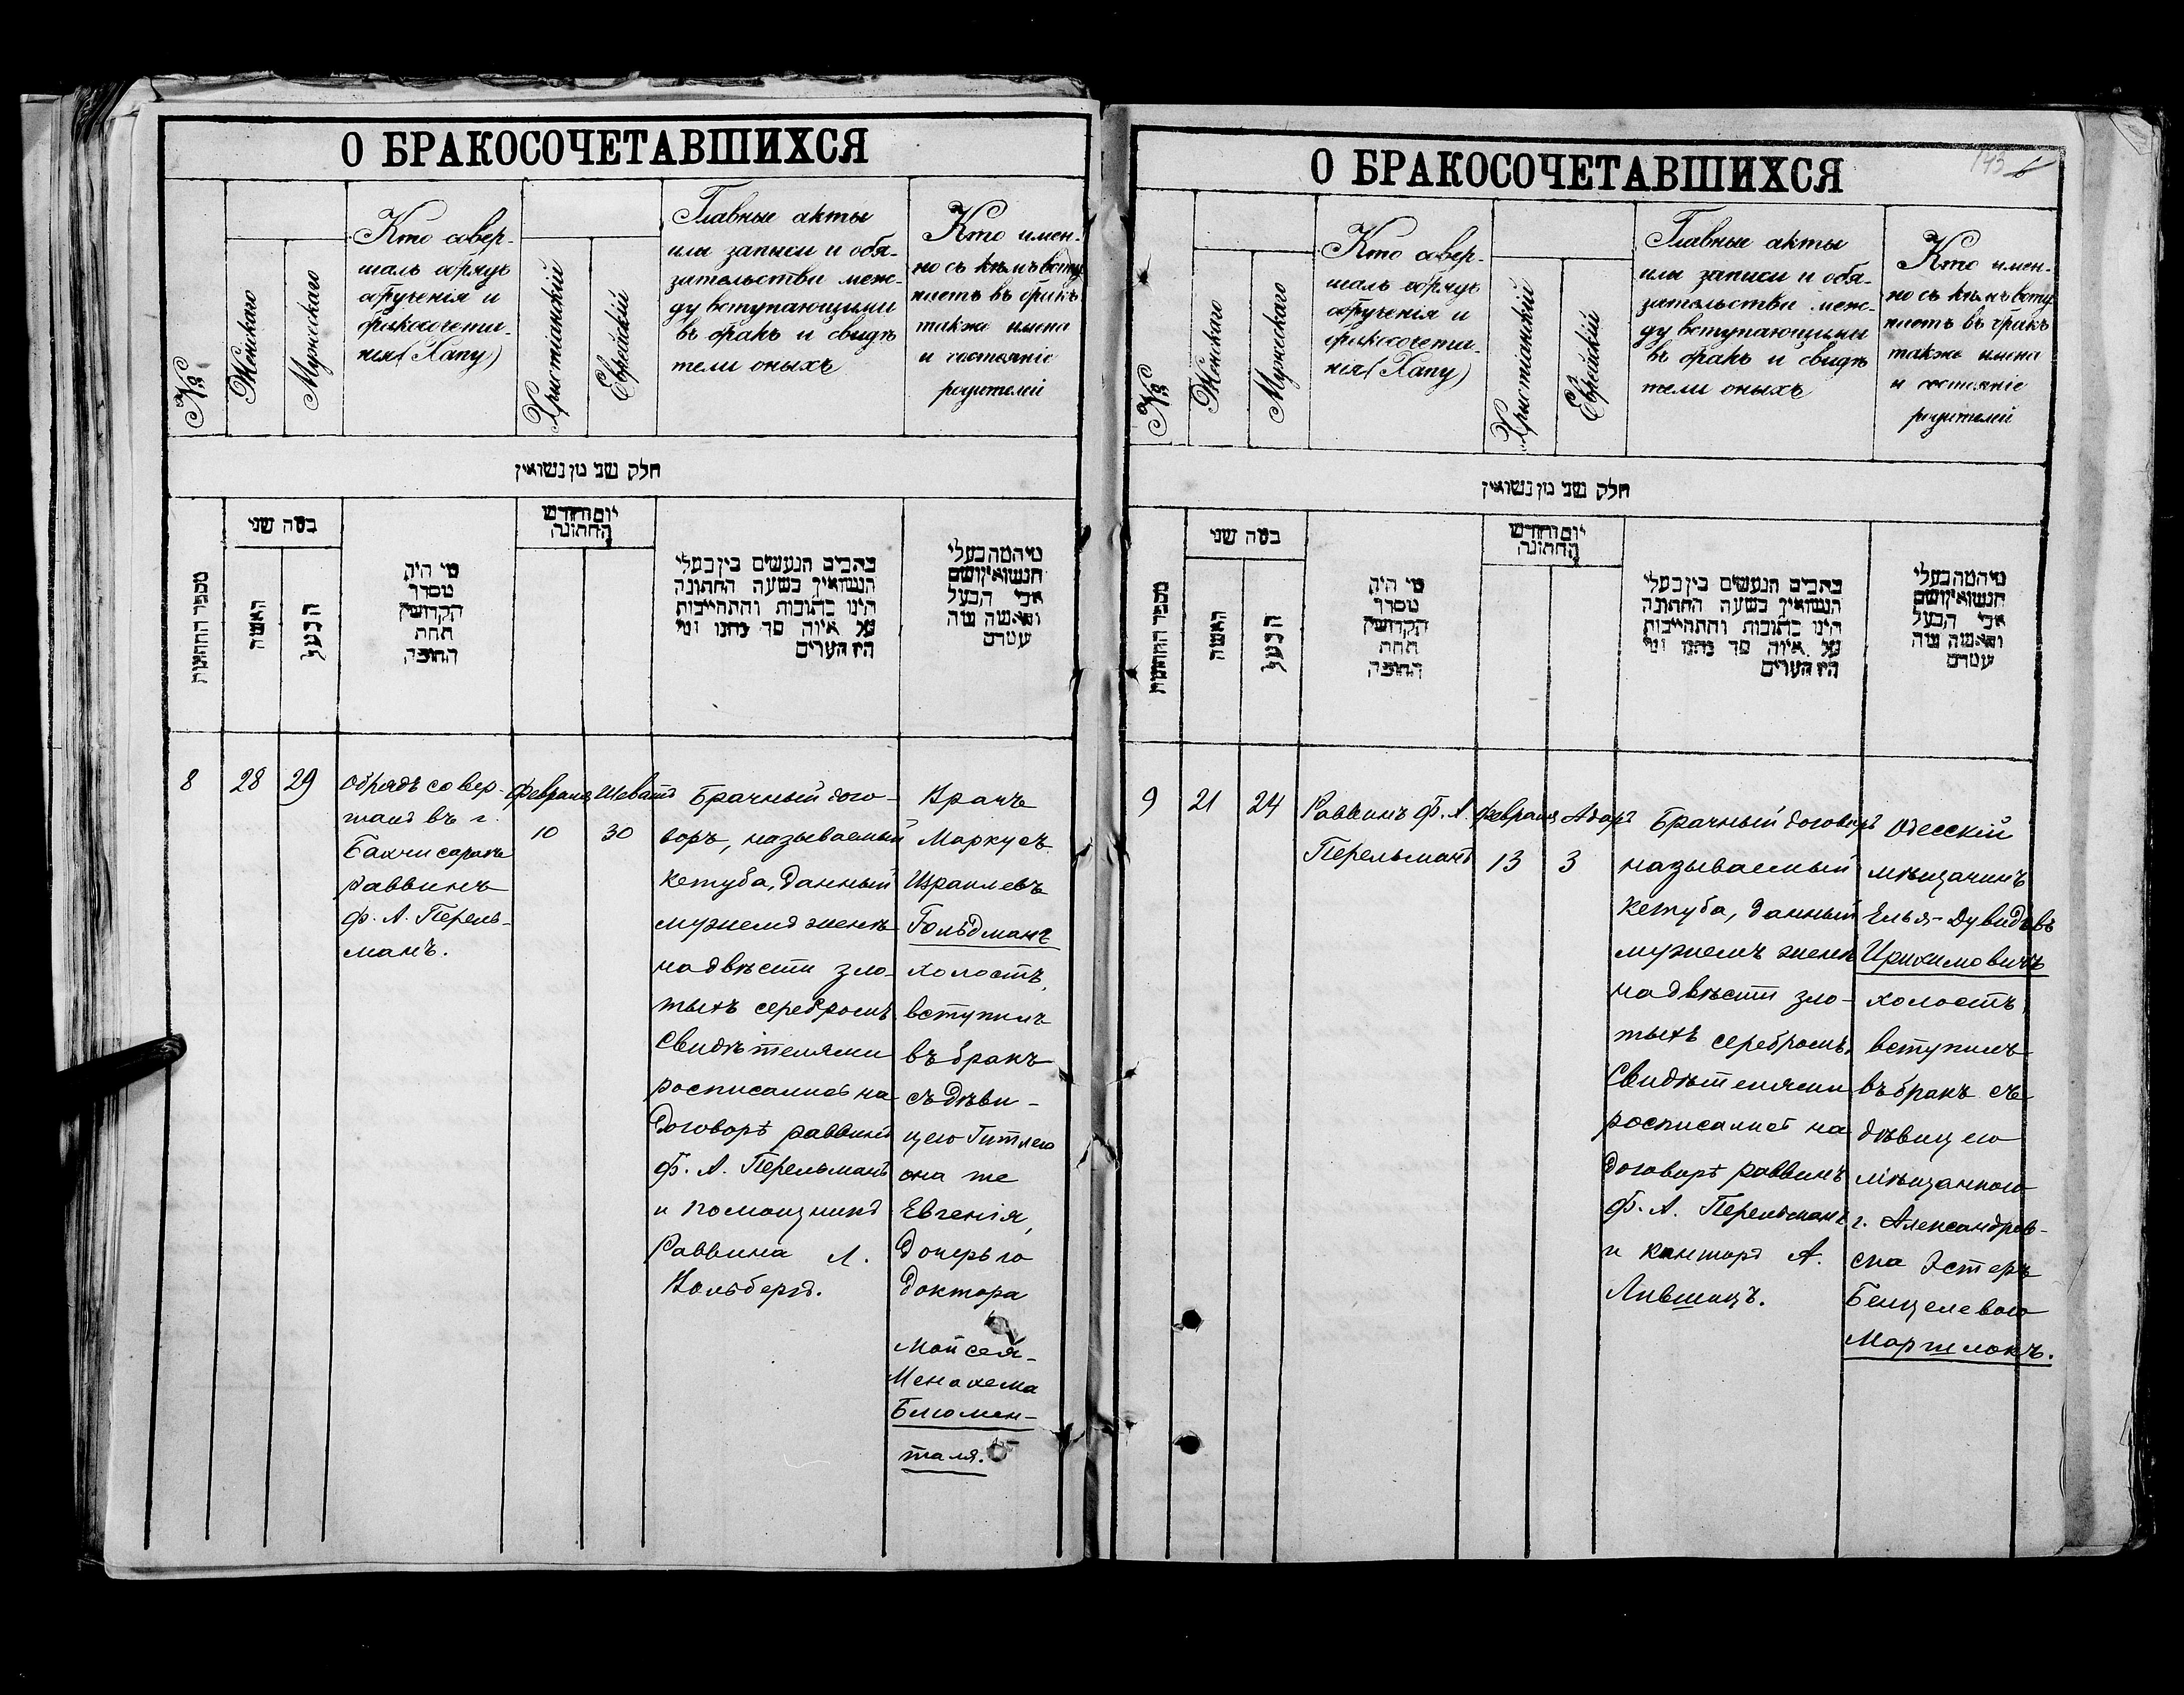 О БРАКОСОЧЕТАВШИХСЯ
№
Женскаго
Мужескаго
Кто совер-
шалъ обрядъ
обрученія и
бракосочета-
нія (Хапу)
Христіанскій
Еврейскій
Главные акты
или записи и обя-
зательства меж-
ду вступающими
въ бракъ и свидѣ
тели оныхъ
Кто имен-
но съ кѣмъ всту
паетъ въ бракъ
также имена
и состояніе
родителей
חלק שני מן נשואין
מספר החתונות
בסה שני
האשה
הבעל
מי היה
מסדר
הקדושין
תחת
החופה
יום וחודש
החתונה
כתבים הנעשים בין בעלי
הנשואין בשעה החתונה
הינו כתובות והתחייבות
על איזה סך נתנו ומי
היו הערים
מי המה בעלי
הנשואין ושם
אבי הבעל
והאשה מה
עטרם
8
28
29
Обрядъ совер-
шалъ въ г.
Бахчисараѣ
раввинъ
Ф. А. Перель-
манъ.
Февраля
10
Шеватъ
30
Брачный дого-
воръ, называемый
кетуба, данный
мужемъ женѣ
на двѣсти зло-
тыхъ серебромъ.
Свидѣтелями
росписались на
договорѣ раввинъ
Ф. А. Перельманъ
и помощникъ
Раввина Л.
Кольбергъ.
Врачъ
Маркусъ
Израилевъ
Гольдманъ
холостъ,
вступилъ
въ бракъ
съ дѣви-
цею Гитлею
она же
Евгенія,
дочерью
доктора
Мойсея-
Менахема
Блюмен-
таля.
143
О БРАКОСОЧЕТАВШИХСЯ
№
Женскаго
Мужескаго
Кто совер-
шалъ обрядъ
обрученія и
бракосочета-
нія (Хапу)
Христіанскій
Еврейскій
Главные акты
или записи и обя-
зательства меж-
ду вступающими
въ бракъ и свидѣ
тели оныхъ
Кто имен-
но съ кѣмъ всту
паетъ въ бракъ
также имена
и состояніе
родителей
חלק שני מן נשואין
מספר החתונות
בסה שני
האשה
הבעל
מי היה
מסדר
הקדושין
תחת
החופה
יום וחודש
החתונה
כתבים הנעשים בין בעלי
הנשואין בשעה החתונה
הינו כתובות והתחייבות
על איזה סך נתנו ומי
היו הערים
מי המה בעלי
הנשואין ושם
אבי הבעל
והאשה מה
עטרם
9
21
24
Раввинъ Ф. А.
Перельманъ
Февраля
13
Адаръ
3
Брачный договоръ
называемый
кетуба, данный
мужемъ женѣ
на двѣсти зло-
тыхъ серебромъ.
Свидѣтелями
росписались на
договорѣ раввинъ
Ф. А. Перельманъ
и канторъ А.
Лившицъ.
Одесскій
мѣщанинъ
Элья-Дувидовъ
Ирихимовичъ
холостъ,
вступилъ
въ бракъ съ
дѣвицею
мѣщанкою
г. Александров-
ска Эстеръ
Бенцелевою
Маршлокъ.